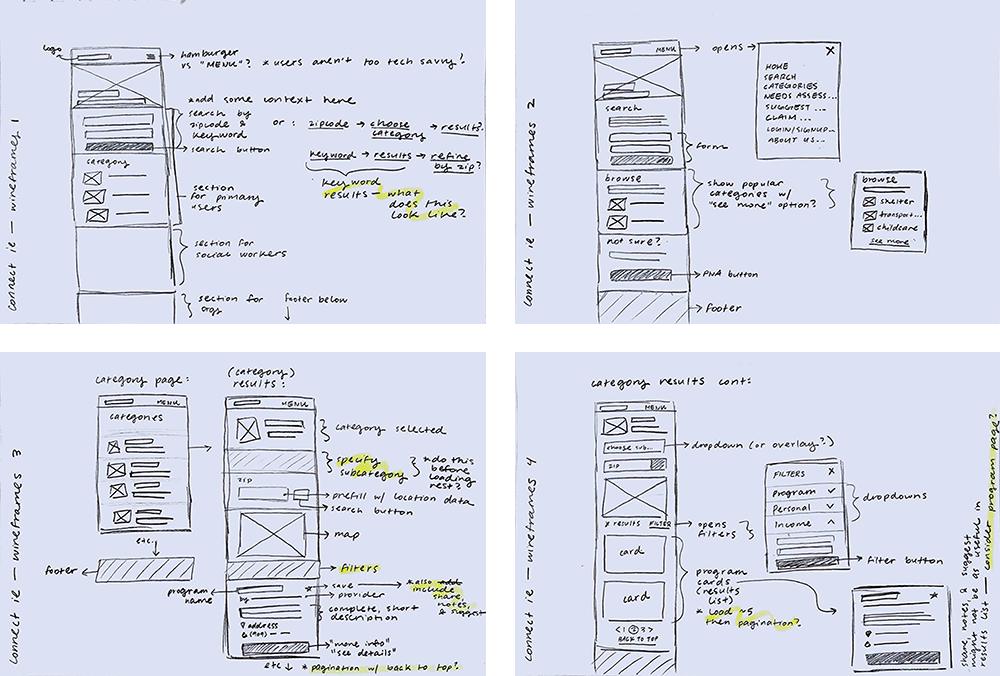 connect ie — wireframes 1
logo
hamburger
vs "MENU"? * users aren't too tech savvy?
*add some context here
search by
zipcode &
keyword
or : zipcode → choose category → results?
search button
keyword → results → refine by zip?
keyword
results — what
does this
look like?
category
section
for primary
users
section for
social workers
section for
orgs
footer below
connect ie — wireframes 2
MENU
opens
X
HOME
SEARCH
CATEGORIES
NEEDS ASSESS...
SUGGEST ...
CLAIM ...
LOGIN/SIGNUP...
ABOUT US...
search
form
browse
show popular
categories w/
"see more" option?
browse
shelter
transport...
childcare
see more
not sure?
PNA button
footer
connect ie — wireframes 3
category page:
MENU
categories
etc.
footer
(category)
results:
MENU
category selected
specify
subcategory
*do this
before
loading
rest?
zip
prefill w/ location data
search button
map
filters
program
name
save
*also add
include
share,
notes,
& suggest
by
provider
complete, short
description
address
"more info"
"see details"
etc ↓ * pagination w/ back to top?
connect ie — wireframes 4
category results cont:
MENU
choose sub...
dropdown (or overlay?)
zip
X results FILTER
opens
filters
FILTERS X
Program
Personal
Income
dropdowns
Filter button
card
card
program
cards
(results
list)
* load ~5
then pagination?
<1 2 3>
BACK TO TOP
share, notes, & suggest
might not be as useful in
results list — consider program page?